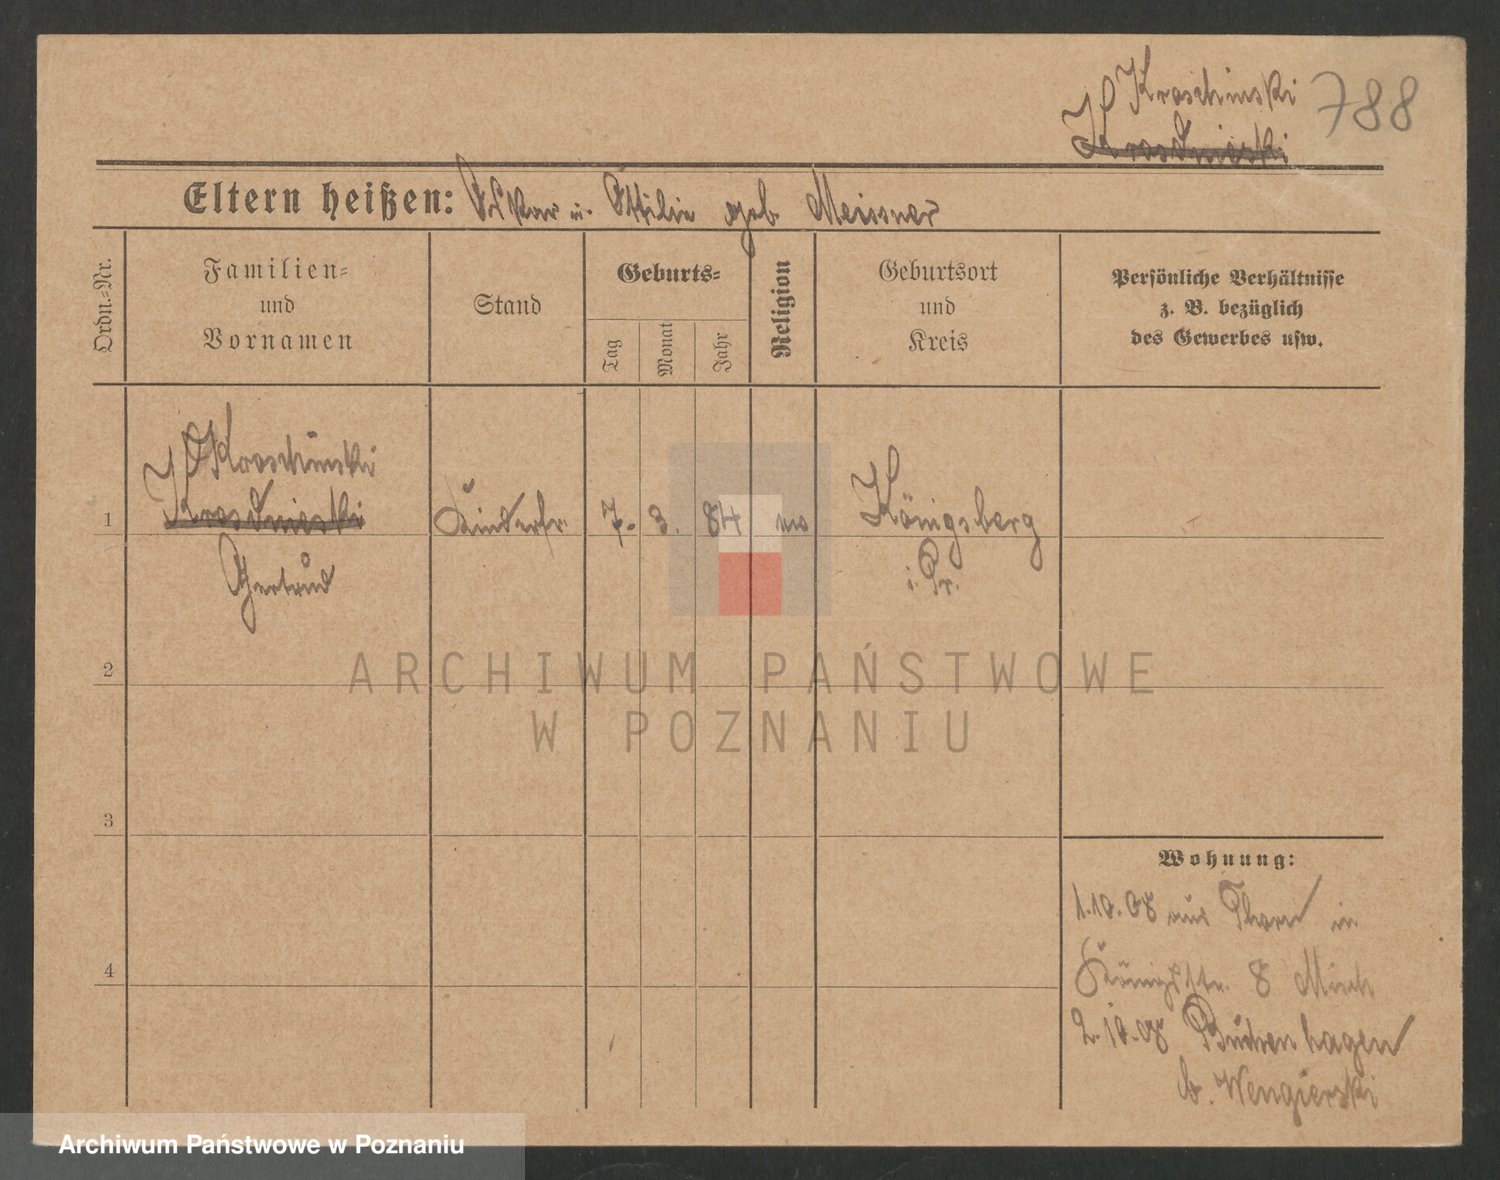 Kroschinski 788
Eltern heißen: Oskar u. Ottilie geb. Meissner
Ordn.=Nr.
Familien=
und
Vornamen
Stand
Geburts=
Tag
Monat
Jahr
Religion
Geburtsort
und
Kreis
Persönliche Verhältnisse
z. B. bezüglich
des Gewerbes usw.
Kroschinski
1 Kinderfr. 7. 3. 84 Königsberg
Gertrud i. Pr.
2
ARCHIWUM PAŃSTWOWE
W POZNANIU
3
Wohnung:
1.10.08 aus Thorn in
Königstr. 8 Misch
4
2.10.08
b. Wengierski
Archiwum Państwowe w Poznaniu